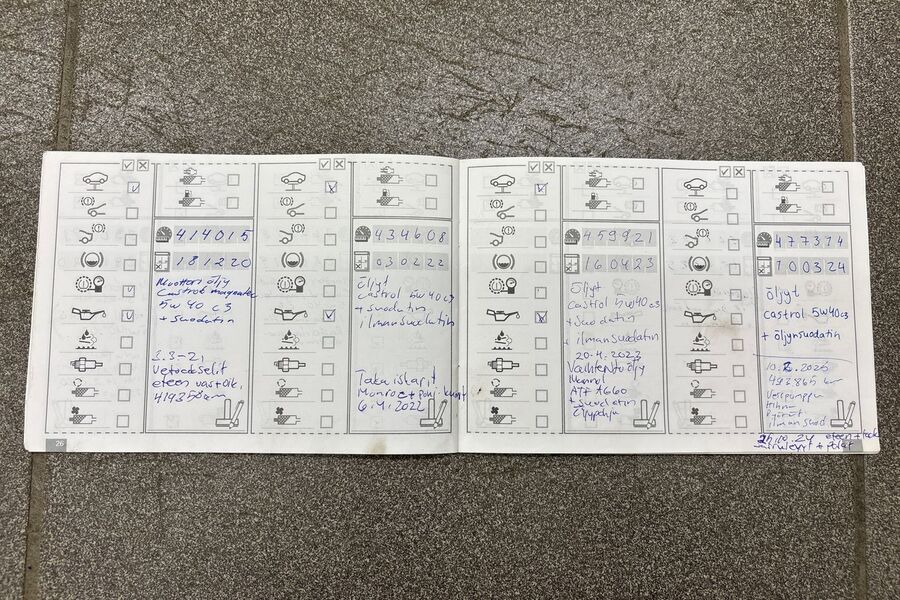 414015
181220
Moottori öljy
Castrol magnatec
5w 40 c3
+ suodatin
3.3-21
Vetoakselit
eteen
26
434608
030222
Öljyt
Castrol 5w40 c3
+ suodatin
ilmansuodatin
Taka iskarit
Monroe +
6.4.2022
459921
160423
Öljyt
Castrol 5w40 c3
+ suodatin
+ ilmansuodatin
20.4.2023
Vaihteistoöljy
ATF
+ suodatin
477314
100324
öljyt
castrol 5W40 c3
+ öljynsuodatin
493865 km
Vesipumppu
hihna
ilmansuod
24.10.24 eteen + taakse
+ palat